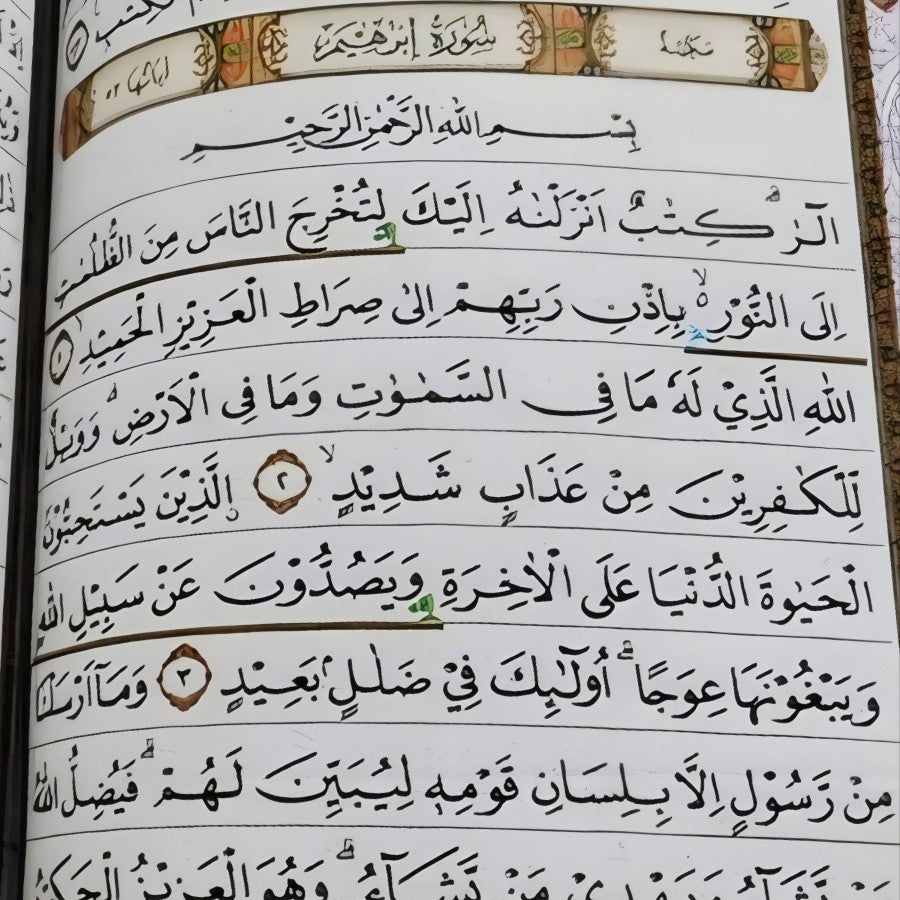 سُورَةُ إِبْرٰهِيْمَ
اياتها ٥٢
بِسْمِ اللّٰهِ الرَّحْمٰنِ الرَّحِيْمِ
الۤرٰ ۗ كِتٰبٌ اَنْزَلْنٰهُ اِلَيْكَ لِتُخْرِجَ النَّاسَ مِنَ الظُّلُمٰتِ
اِلَى النُّوْرِ ەۙ بِاِذْنِ رَبِّهِمْ اِلٰى صِرَاطِ الْعَزِيْزِ الْحَمِيْدِ ١
اللّٰهِ الَّذِيْ لَهٗ مَا فِى السَّمٰوٰتِ وَمَا فِى الْاَرْضِۗ وَوَيْلٌ
لِّلْكٰفِرِيْنَ مِنْ عَذَابٍ شَدِيْدٍۙ ٢ ۨالَّذِيْنَ يَسْتَحِبُّوْنَ
الْحَيٰوةَ الدُّنْيَا عَلَى الْاٰخِرَةِ وَيَصُدُّوْنَ عَنْ سَبِيْلِ اللّٰهِ
وَيَبْغُوْنَهَا عِوَجًاۗ اُولٰۤىِٕكَ فِيْ ضَلٰلٍۢ بَعِيْدٍ ٣ وَمَآ اَرْسَلْنَا
مِنْ رَّسُوْلٍ اِلَّا بِلِسَانِ قَوْمِهٖ لِيُبَيِّنَ لَهُمْۗ فَيُضِلُّ اللّٰهُ
مَنْ يَّشَاۤءُ وَيَهْدِيْ مَنْ يَّشَاۤءُۗ وَهُوَ الْعَزِيْزُ الْحَكِيْمُ